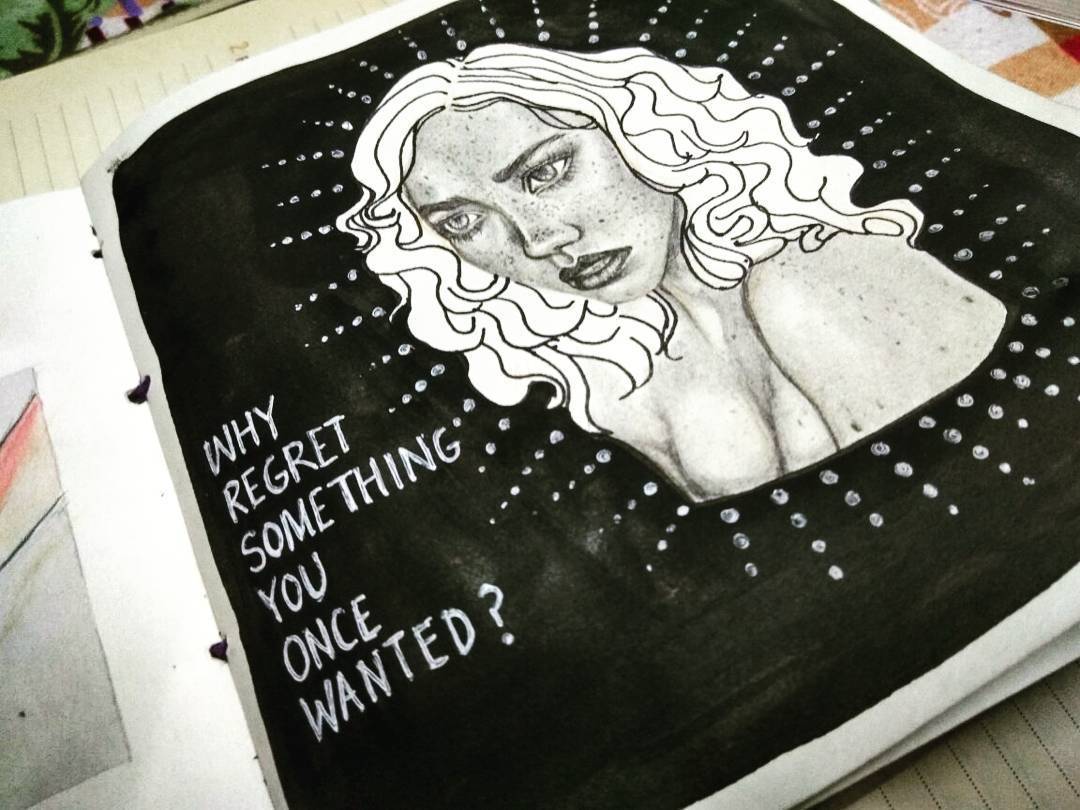 WHY
REGRET
SOMETHING
YOU
ONCE
WANTED?